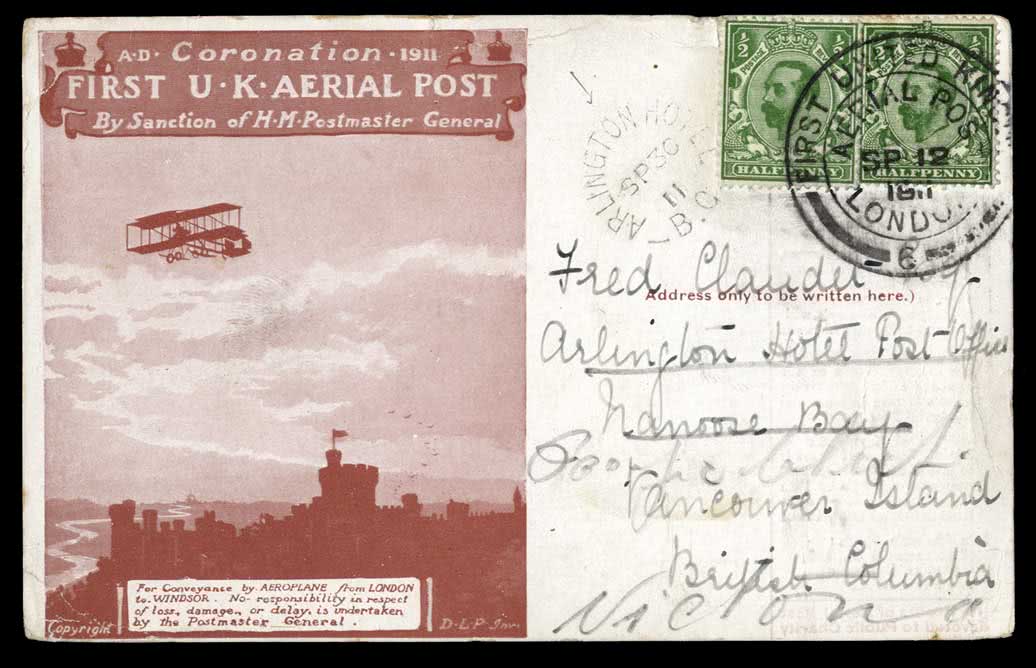 A·D· Coronation · 1911
FIRST U·K·AERIAL POST
By Sanction of H·M·Postmaster General
For Conveyance by AEROPLANE from LONDON
to WINDSOR. No responsibility in respect
of loss, damage, or delay, is undertaken
by the Postmaster General.
Copyright
D·L·P·Inv.
½ ½
HALFPENNY HALFPENNY
FIRST UNITED KING
AERIAL POST
SP 12
1911
LONDON
6
ARLINGTON HOTEL
SP 30
11
B.C
Fred Claudet Esq.
Address only to be written here.)
Arlington Hotel Post Office
Nanoose Bay
Vancouver Island
British Columbia
Victoria